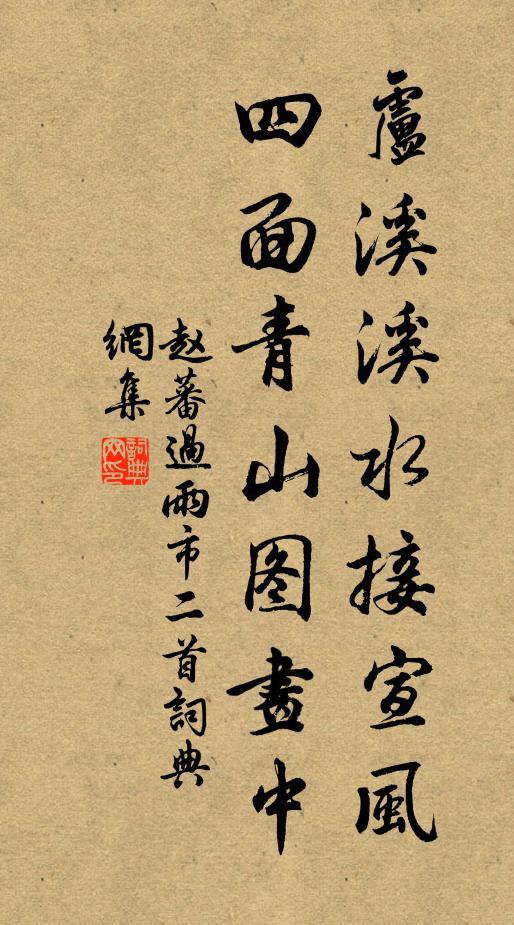 盧溪溪水接宣風
四面青山图畫中
赵蕃過兩市二首詞典
網集
詞典
网印